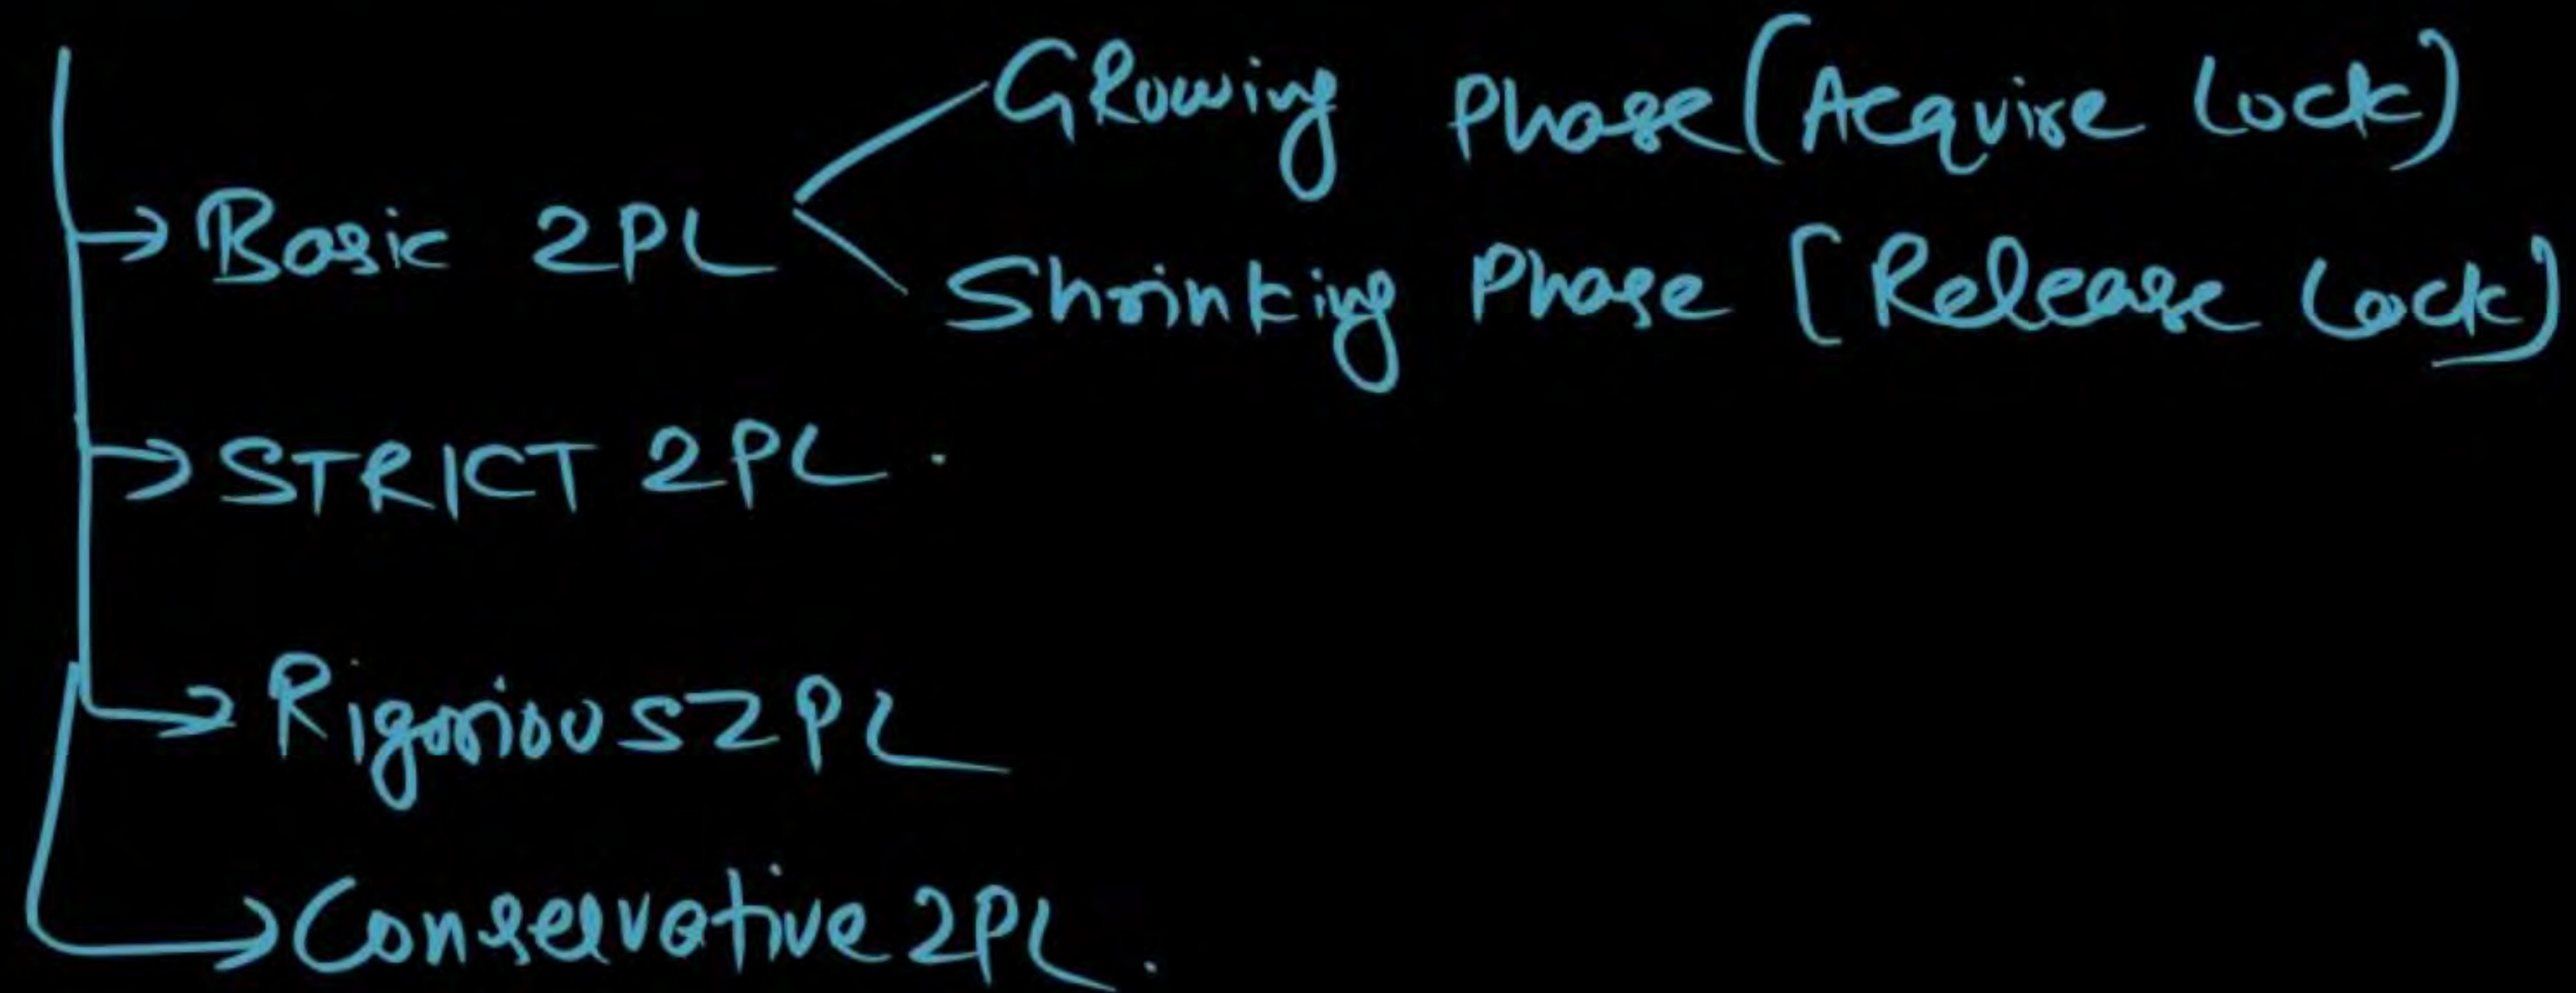 GRowing Phase (Acquire Lock)
Basic 2PL
Shrinking Phase [Release Lock]
STRICT 2PL.
Rigorious 2PL
Conservative 2PL.